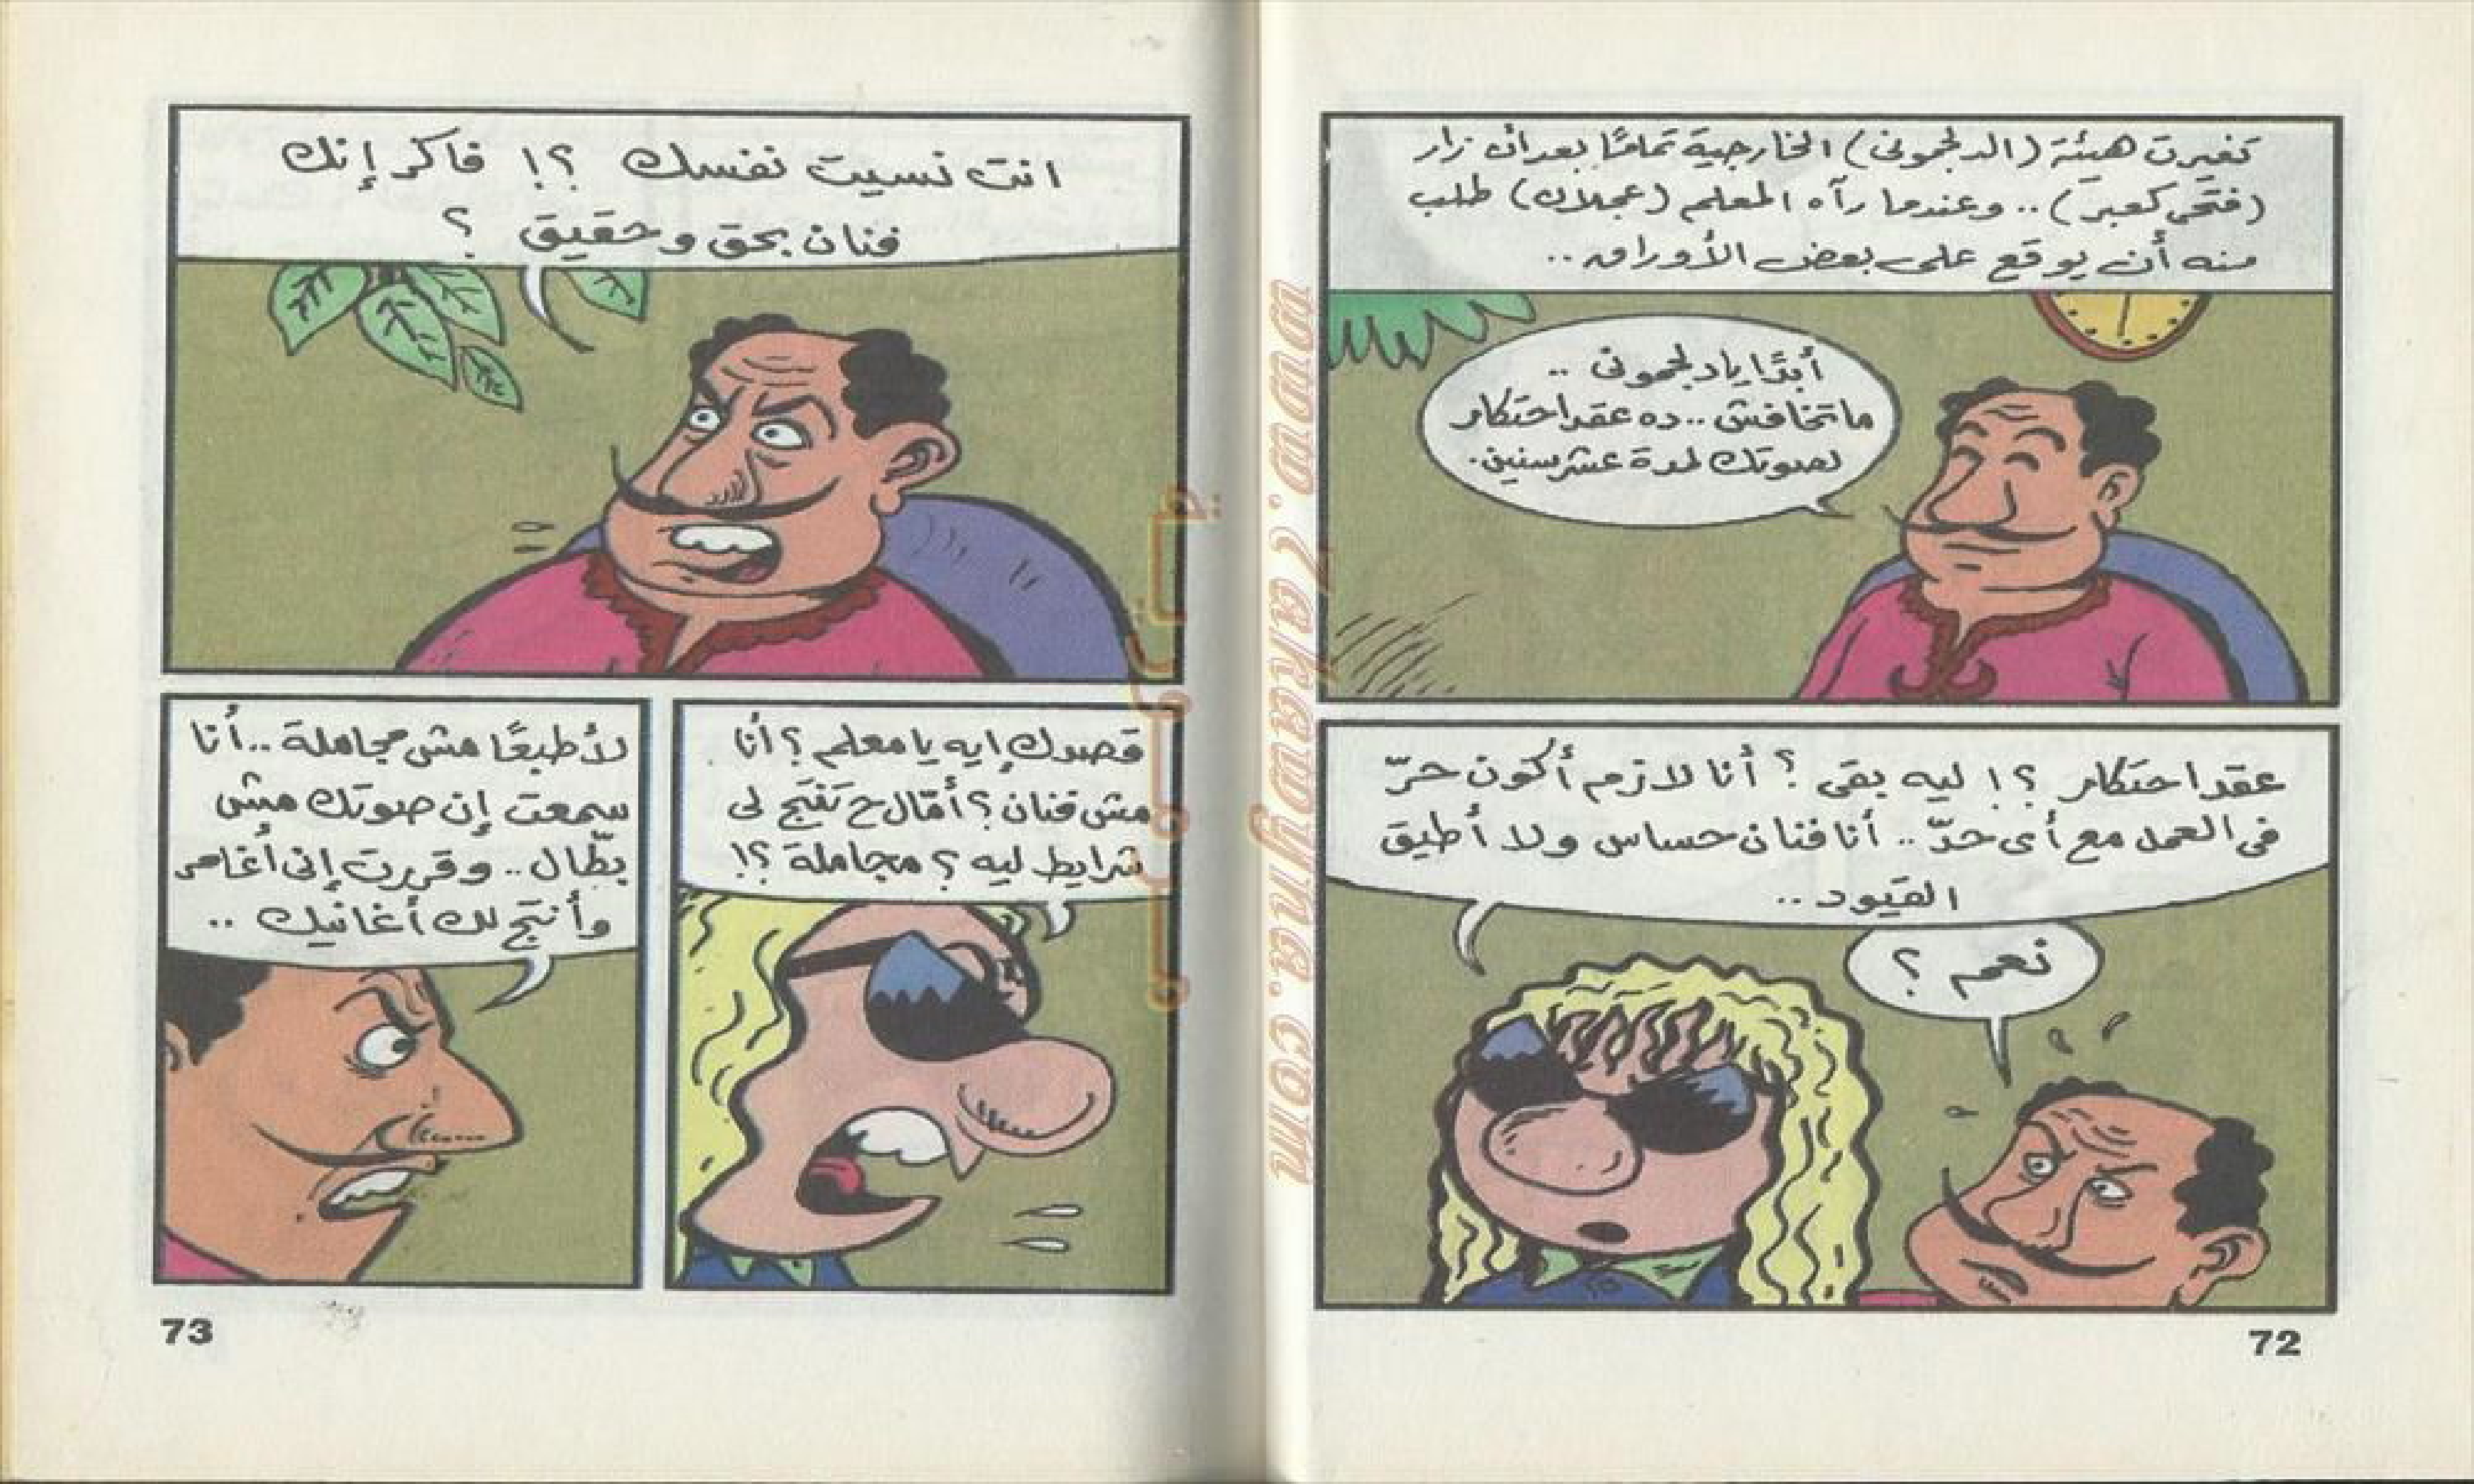 تغيرت هيئة (الدلجمونى) الخارجية تمامًا بعد أن زار
(فتحى كعبر) .. وعندما رآه المعلم (عجلان) طلب
منه أن يوقع على بعض الأوراق ..
أبدًا يا دلجمونى ..
ماتخافش .. ده عقد احتكار
لصوتك لمدة عشر سنين .
عقد احتكار ؟! ليه بقى ؟ أنا لازم أكون حرّ
فى العمل مع أى حدّ .. أنا فنان حساس ولا أطيق
القيود ..
نعم ؟
72
انت نسيت نفسك ؟! فاكر إنك
فنان بحق وحقيق ؟
قصدك إيه يا معلم ؟ أنا
مش فنان ؟ أمّال ح تنتج لى
شرايط ليه ؟ مجاملة ؟!
لأ طبعًا مش مجاملة .. أنا
سمعت إن صوتك مش
بطّال .. وقررت إنى أغامر
وأنتج لك أغانيك ..
73
www.7akawyna.com